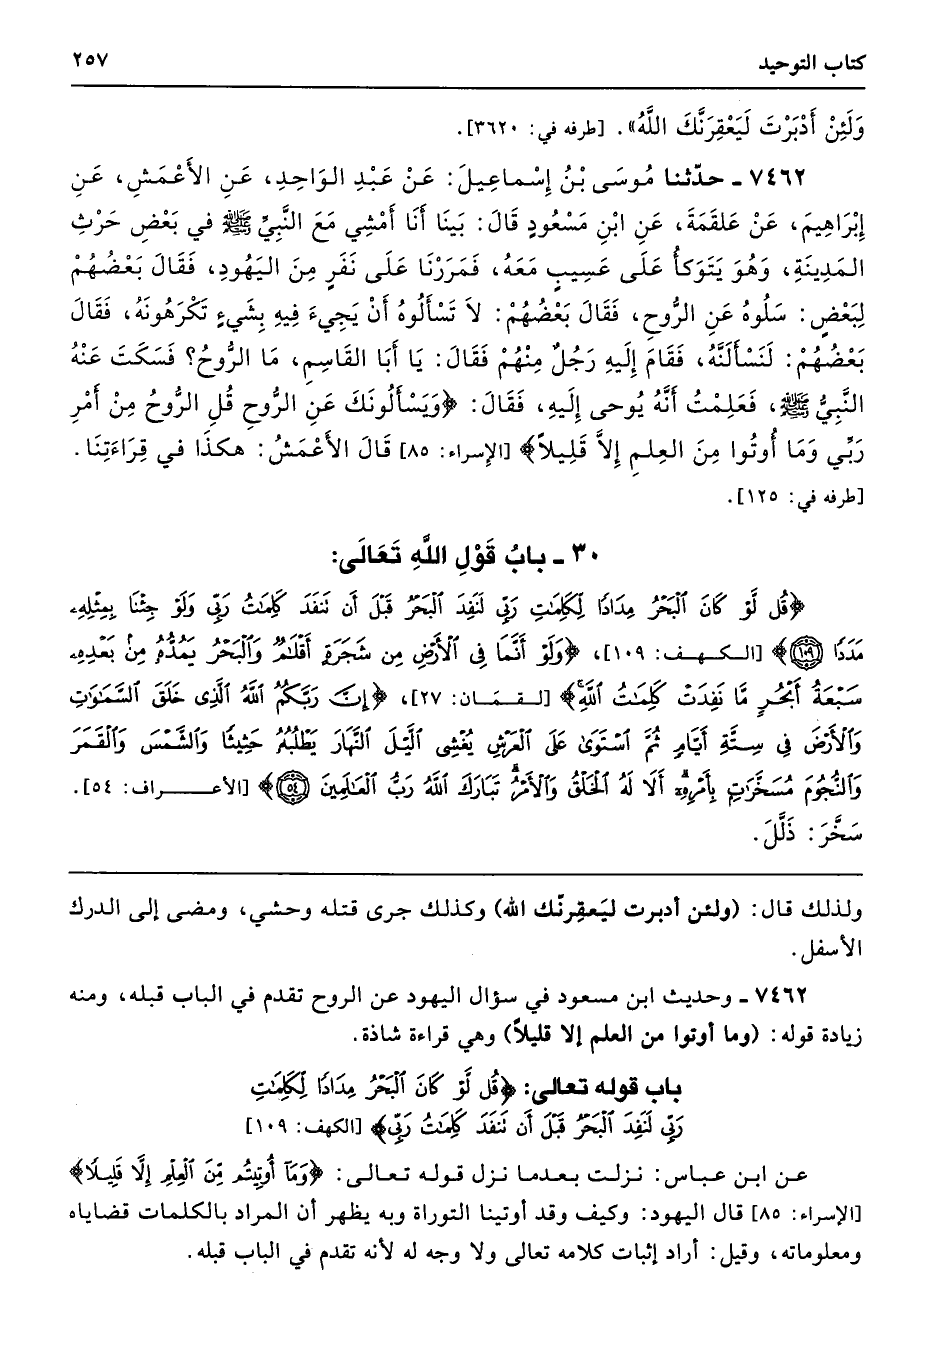 كتاب التوحيد ٢٥٧
وَلَئِنْ أَدْبَرْتَ لَيَعْقِرَنَّكَ اللَّهُ». [طرفه في: ٣٦٢٠].
٧٤٦٢ ـ حدّثنا مُوسَى بْنُ إِسْماعِيلَ: عَنْ عَبْدِ الوَاحِدِ، عَنِ الأَعْمَشِ، عَنِ
إِبْرَاهِيمَ، عَنْ عَلقَمَةَ، عَنِ ابْنِ مَسْعُودٍ قَالَ: بَينَا أَنَا أَمْشِي مَعَ النَّبِيِّ ﷺ في بَعْضِ حَرْثِ
المَدِينَةِ، وَهُوَ يَتَوَكأُ عَلَى عَسِيبٍ مَعَهُ، فَمَرَرْنَا عَلَى نَفَرٍ مِنَ اليَهُودِ، فَقَالَ بَعْضُهُمْ
لِبَعْضٍ: سَلُوهُ عَنِ الرُّوحِ، فَقَالَ بَعْضُهُمْ: لاَ تَسْأَلُوهُ أَنْ يَجِيءَ فِيهِ بِشَيءٍ تَكْرَهُونَهُ، فَقَالَ
بَعْضُهُمْ: لَنَسْأَلَنَّهُ، فَقَامَ إِلَيهِ رَجُلٌ مِنْهُمْ فَقَالَ: يَا أَبَا القَاسِمِ، مَا الرُّوحُ؟ فَسَكَتَ عَنْهُ
النَّبِيُّ ﷺ، فَعَلِمْتُ أَنَّهُ يُوحى إِلَيهِ، فَقَالَ: ﴿وَيَسْأَلُونَكَ عَنِ الرُّوحِ قُلِ الرُّوحُ مِنْ أَمْرِ
رَبِّي وَمَا أُوتُوا مِنَ العِلمِ إِلاَّ قَلِيلاً﴾ [الإسراء: ٨٥] قَالَ الأَعْمَشُ: هكَذَا في قِرَاءَتِنَا.
[طرفه في: ١٢٥].
٣٠ ـ بابُ قَوْلِ اللَّهِ تَعَالَى:
﴿قُل لَّوْ كَانَ ٱلْبَحْرُ مِدَادًا لِّكَلِمَٰتِ رَبِّى لَنَفِدَ ٱلْبَحْرُ قَبْلَ أَن تَنفَدَ كَلِمَٰتُ رَبِّى وَلَوْ جِئْنَا بِمِثْلِهِۦ
مَدَدًا ١٠٩﴾ [الكهف: ١٠٩]، ﴿وَلَوْ أَنَّمَا فِى ٱلْأَرْضِ مِن شَجَرَةٍ أَقْلَٰمٌ وَٱلْبَحْرُ يَمُدُّهُۥ مِنۢ بَعْدِهِۦ
سَبْعَةُ أَبْحُرٍ مَّا نَفِدَتْ كَلِمَٰتُ ٱللَّهِ﴾ [لقمَان: ٢٧]، ﴿إِنَّ رَبَّكُمُ ٱللَّهُ ٱلَّذِى خَلَقَ ٱلسَّمَٰوَٰتِ
وَٱلْأَرْضَ فِى سِتَّةِ أَيَّامٍ ثُمَّ ٱسْتَوَىٰ عَلَى ٱلْعَرْشِ يُغْشِى ٱلَّيْلَ ٱلنَّهَارَ يَطْلُبُهُۥ حَثِيثًا وَٱلشَّمْسَ وَٱلْقَمَرَ
وَٱلنُّجُومَ مُسَخَّرَٰتٍۭ بِأَمْرِهِۦٓ أَلَا لَهُ ٱلْخَلْقُ وَٱلْأَمْرُ تَبَارَكَ ٱللَّهُ رَبُّ ٱلْعَٰلَمِينَ ٥٤﴾ [الأعراف: ٥٤].
سَخَّرَ: ذَلَّلَ.
ولذلك قال: (ولئن أدبرت ليَعقِرنّك الله) وكذلك جرى قتله وحشي، ومضى إلى الدرك
الأسفل.
٧٤٦٢ ـ وحديث ابن مسعود في سؤال اليهود عن الروح تقدم في الباب قبله، ومنه
زيادة قوله: (وما أوتوا من العلم إلا قليلاً) وهي قراءة شاذة.
باب قوله تعالى: ﴿قُل لَّوْ كَانَ ٱلْبَحْرُ مِدَادًا لِّكَلِمَٰتِ
رَبِّى لَنَفِدَ ٱلْبَحْرُ قَبْلَ أَن تَنفَدَ كَلِمَٰتُ رَبِّى﴾ [الكهف: ١٠٩]
عن ابن عباس: نزلت بعدما نزل قوله تعالى: ﴿وَمَآ أُوتِيتُم مِّنَ ٱلْعِلْمِ إِلَّا قَلِيلًا﴾
[الإسراء: ٨٥] قال اليهود: وكيف وقد أوتينا التوراة وبه يظهر أن المراد بالكلمات قضاياه
ومعلوماته، وقيل: أراد إثبات كلامه تعالى ولا وجه له لأنه تقدم في الباب قبله.